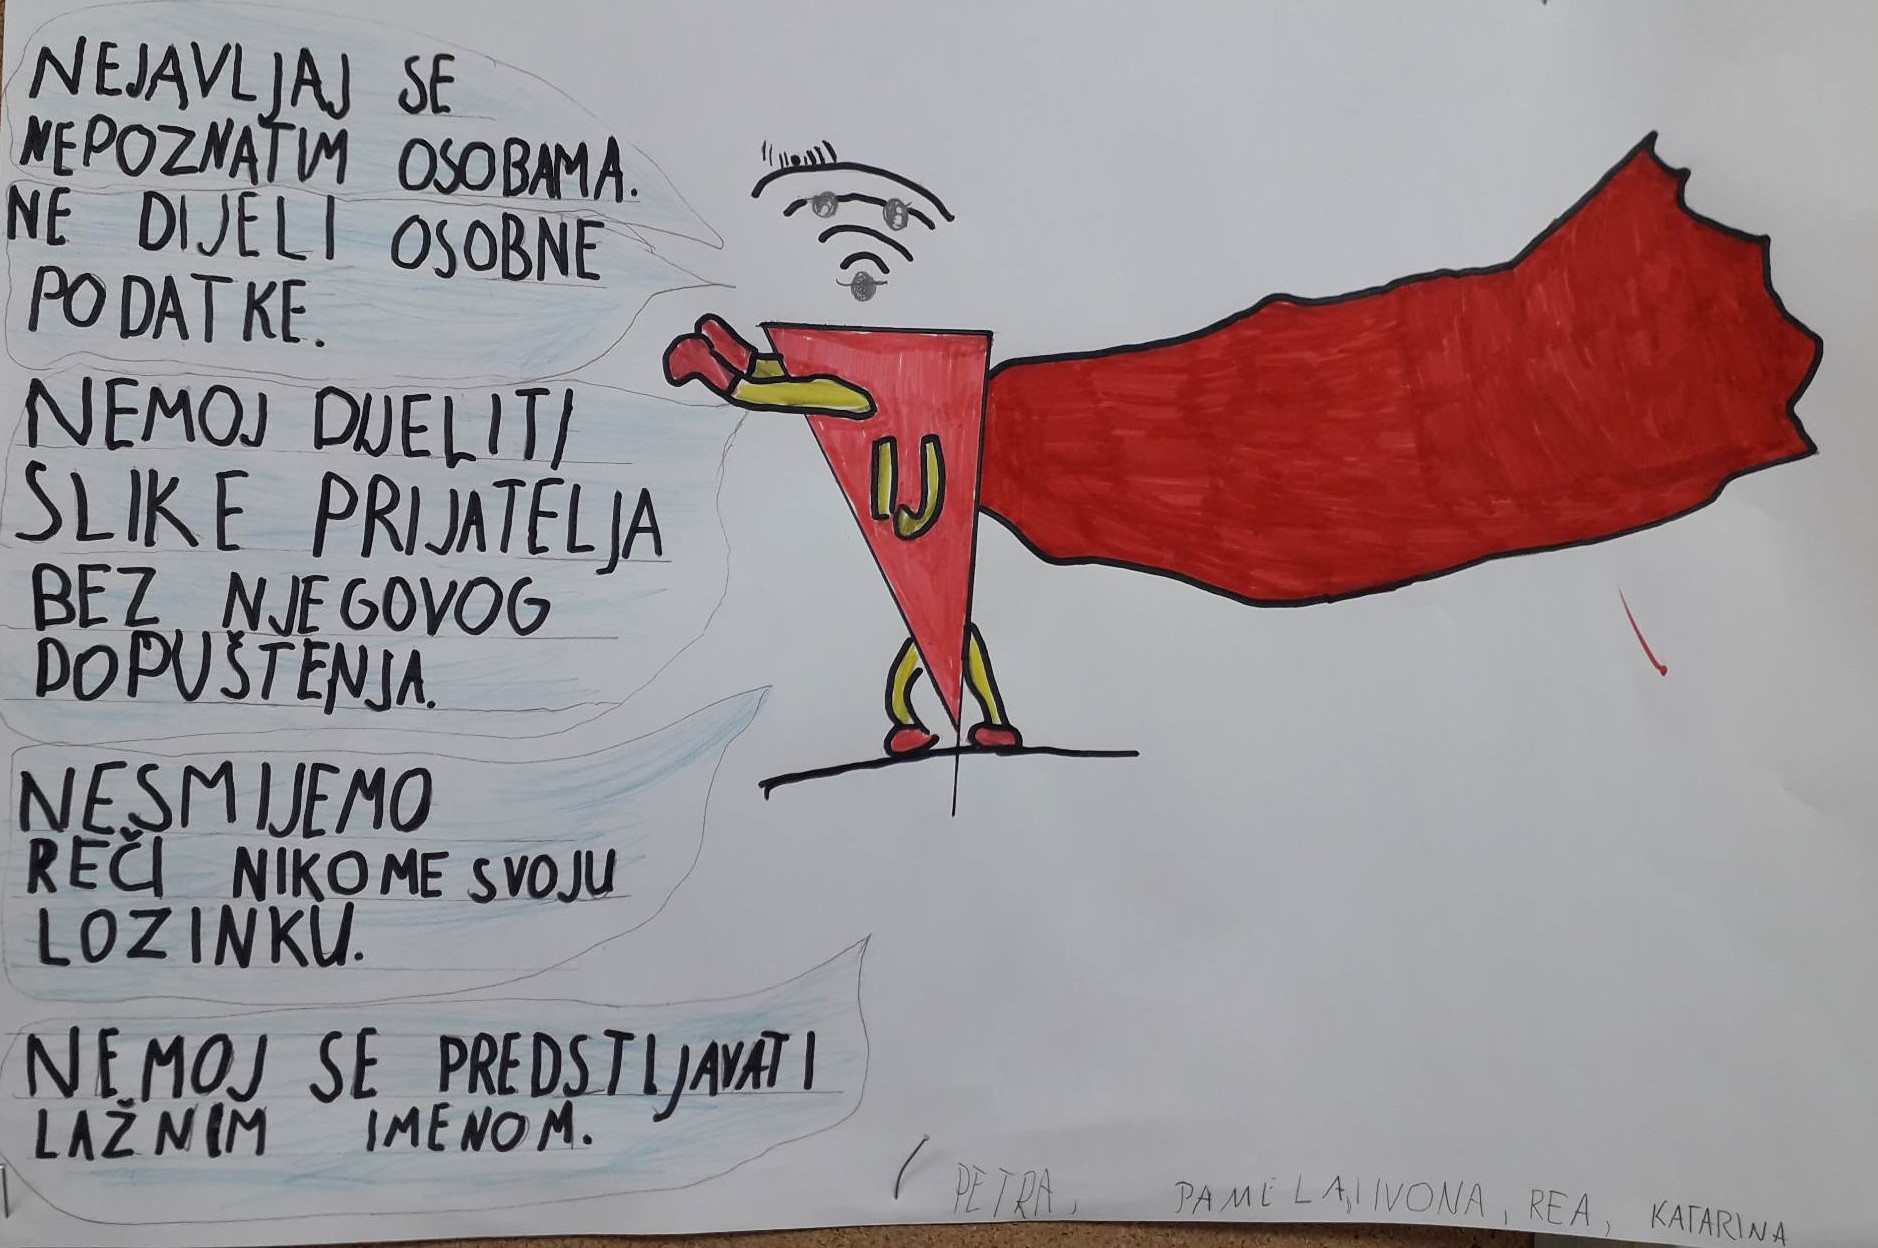 NEJAVLJAJ SE
NEPOZNATIM OSOBAMA.
NE DIJELI OSOBNE
PODATKE.
NEMOJ DIJELITI
SLIKE PRIJATELJA
BEZ NJEGOVOG
DOPUŠTENJA.
NESMIJEMO
REČI NIKOME SVOJU
LOZINKU.
NEMOJ SE PREDSTIJAVATI
LAŽNIM IMENOM.
IJ
PETRA, PAMELA, IVONA, REA, KATARINA